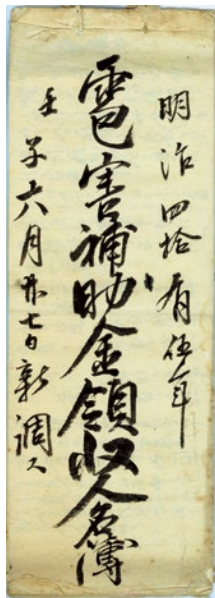 明治四拾有伍年
雹害補助金領収人名簿
壬子六月廿七日新調ス